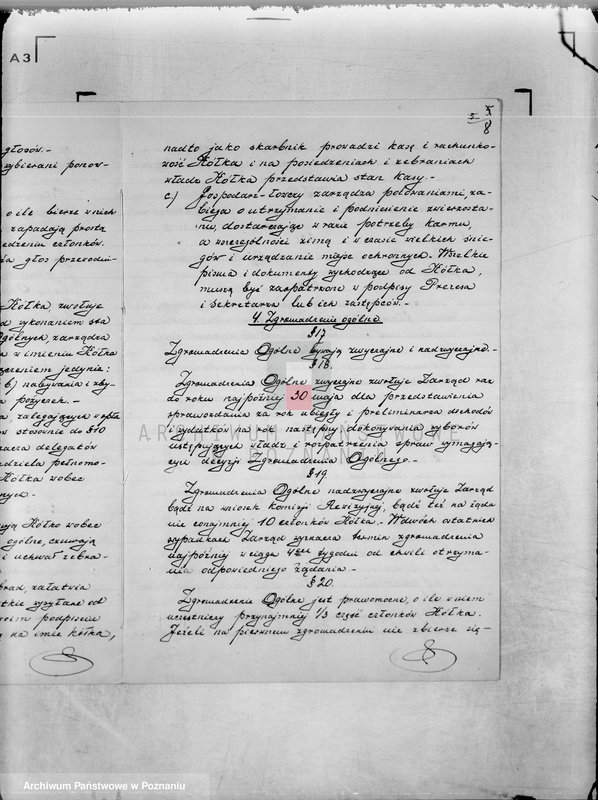 A3
5
8
głosów.-
wybierani ponow-
o ile bierze w nich
zapadają prostą
członków.
Kółka, zwołuje
wykonaniem
zarządza
w imieniu Kółka
jedynie:
b) nabywania i zby-
pożyczek.-
zalegających
stosownie do § 10
delegatów
udziela pełnomo-
Kółka wobec
Kółko wobec
ogólne, czuwają
uchwał zebra-
załatwia
wysyłane od
podpisem
na imię kółka,
nadto jako skarbnik prowadzi kasę i rachunko-
wość Kółka i na posiedzeniach i zebraniach
władz Kółka przedstawia stan kasy.-
c.) Gospodarz-łowczy zarządza polowaniami, za-
biega o utrzymanie i podniesienie zwierzosta-
nu, dostarczając w razie potrzeby karmu,
a w szczególności zimą i w czasie wielkich śnie-
gów i urządzanie miejsc ochronnych. Wszelkie
pisma i dokumenty wychodzące od Kółka,
muszą być zaopatrzone w podpisy Prezesa
i Sekretarza lub ich zastępców.-
4. Zgromadzenie ogólne
§ 17.
Zgromadzenia Ogólne bywają zwyczajne i nadzwyczajne.-
§ 18.
Zgromadzenia Ogólne zwyczajne zwołuje Zarząd raz
do roku najpóźniej 30 maja dla przedstawienia
sprawozdania za rok ubiegły i preliminarza dochodów
i wydatków na rok następny dokonywania wyborów
ustępujących władz i rozpatrzenia spraw wymagają-
cych decyzji Zgromadzenia Ogólnego.-
§ 19
Zgromadzenia Ogólne nadzwyczajne zwołuje Zarząd
bądź na wniosek Komisji Rewizyjnej, bądź też na żąda-
nie conajmniej 10 członków Kółka. W dwóch ostatnich
wypadkach Zarząd wyznacza termin zgromadzenia
najpóźniej w ciągu 4ech tygodni od chwili otrzyma-
nia odpowiedniego żądania.-
§ 20
Zgromadzenie Ogólne jest prawomocne, o ile w niem
uczestniczy przynajmniej 1/3 część członków Kółka.
Jeżeli na pierwszem zgromadzeniu nie zbierze się-
ARCHIWUM PAŃSTWOWE
W POZNANIU
Archiwum Państwowe w Poznaniu